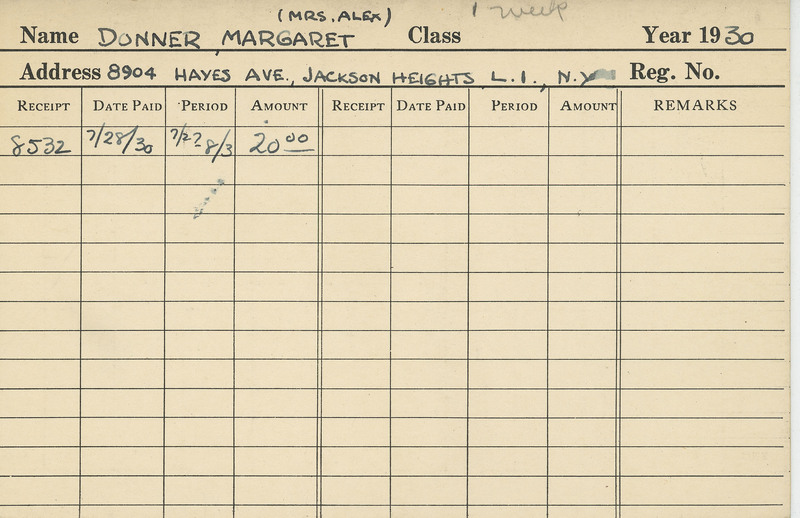 (MRS. ALEX) 1 week
Name DONNER, MARGARET Class Year 1930
Address 8904 HAYES AVE., JACKSON HEIGHTS, L.I., N.Y. Reg. No.
RECEIPT DATE PAID PERIOD AMOUNT RECEIPT DATE PAID PERIOD AMOUNT REMARKS
8532 7/28/30 7/27-8/3 20.00